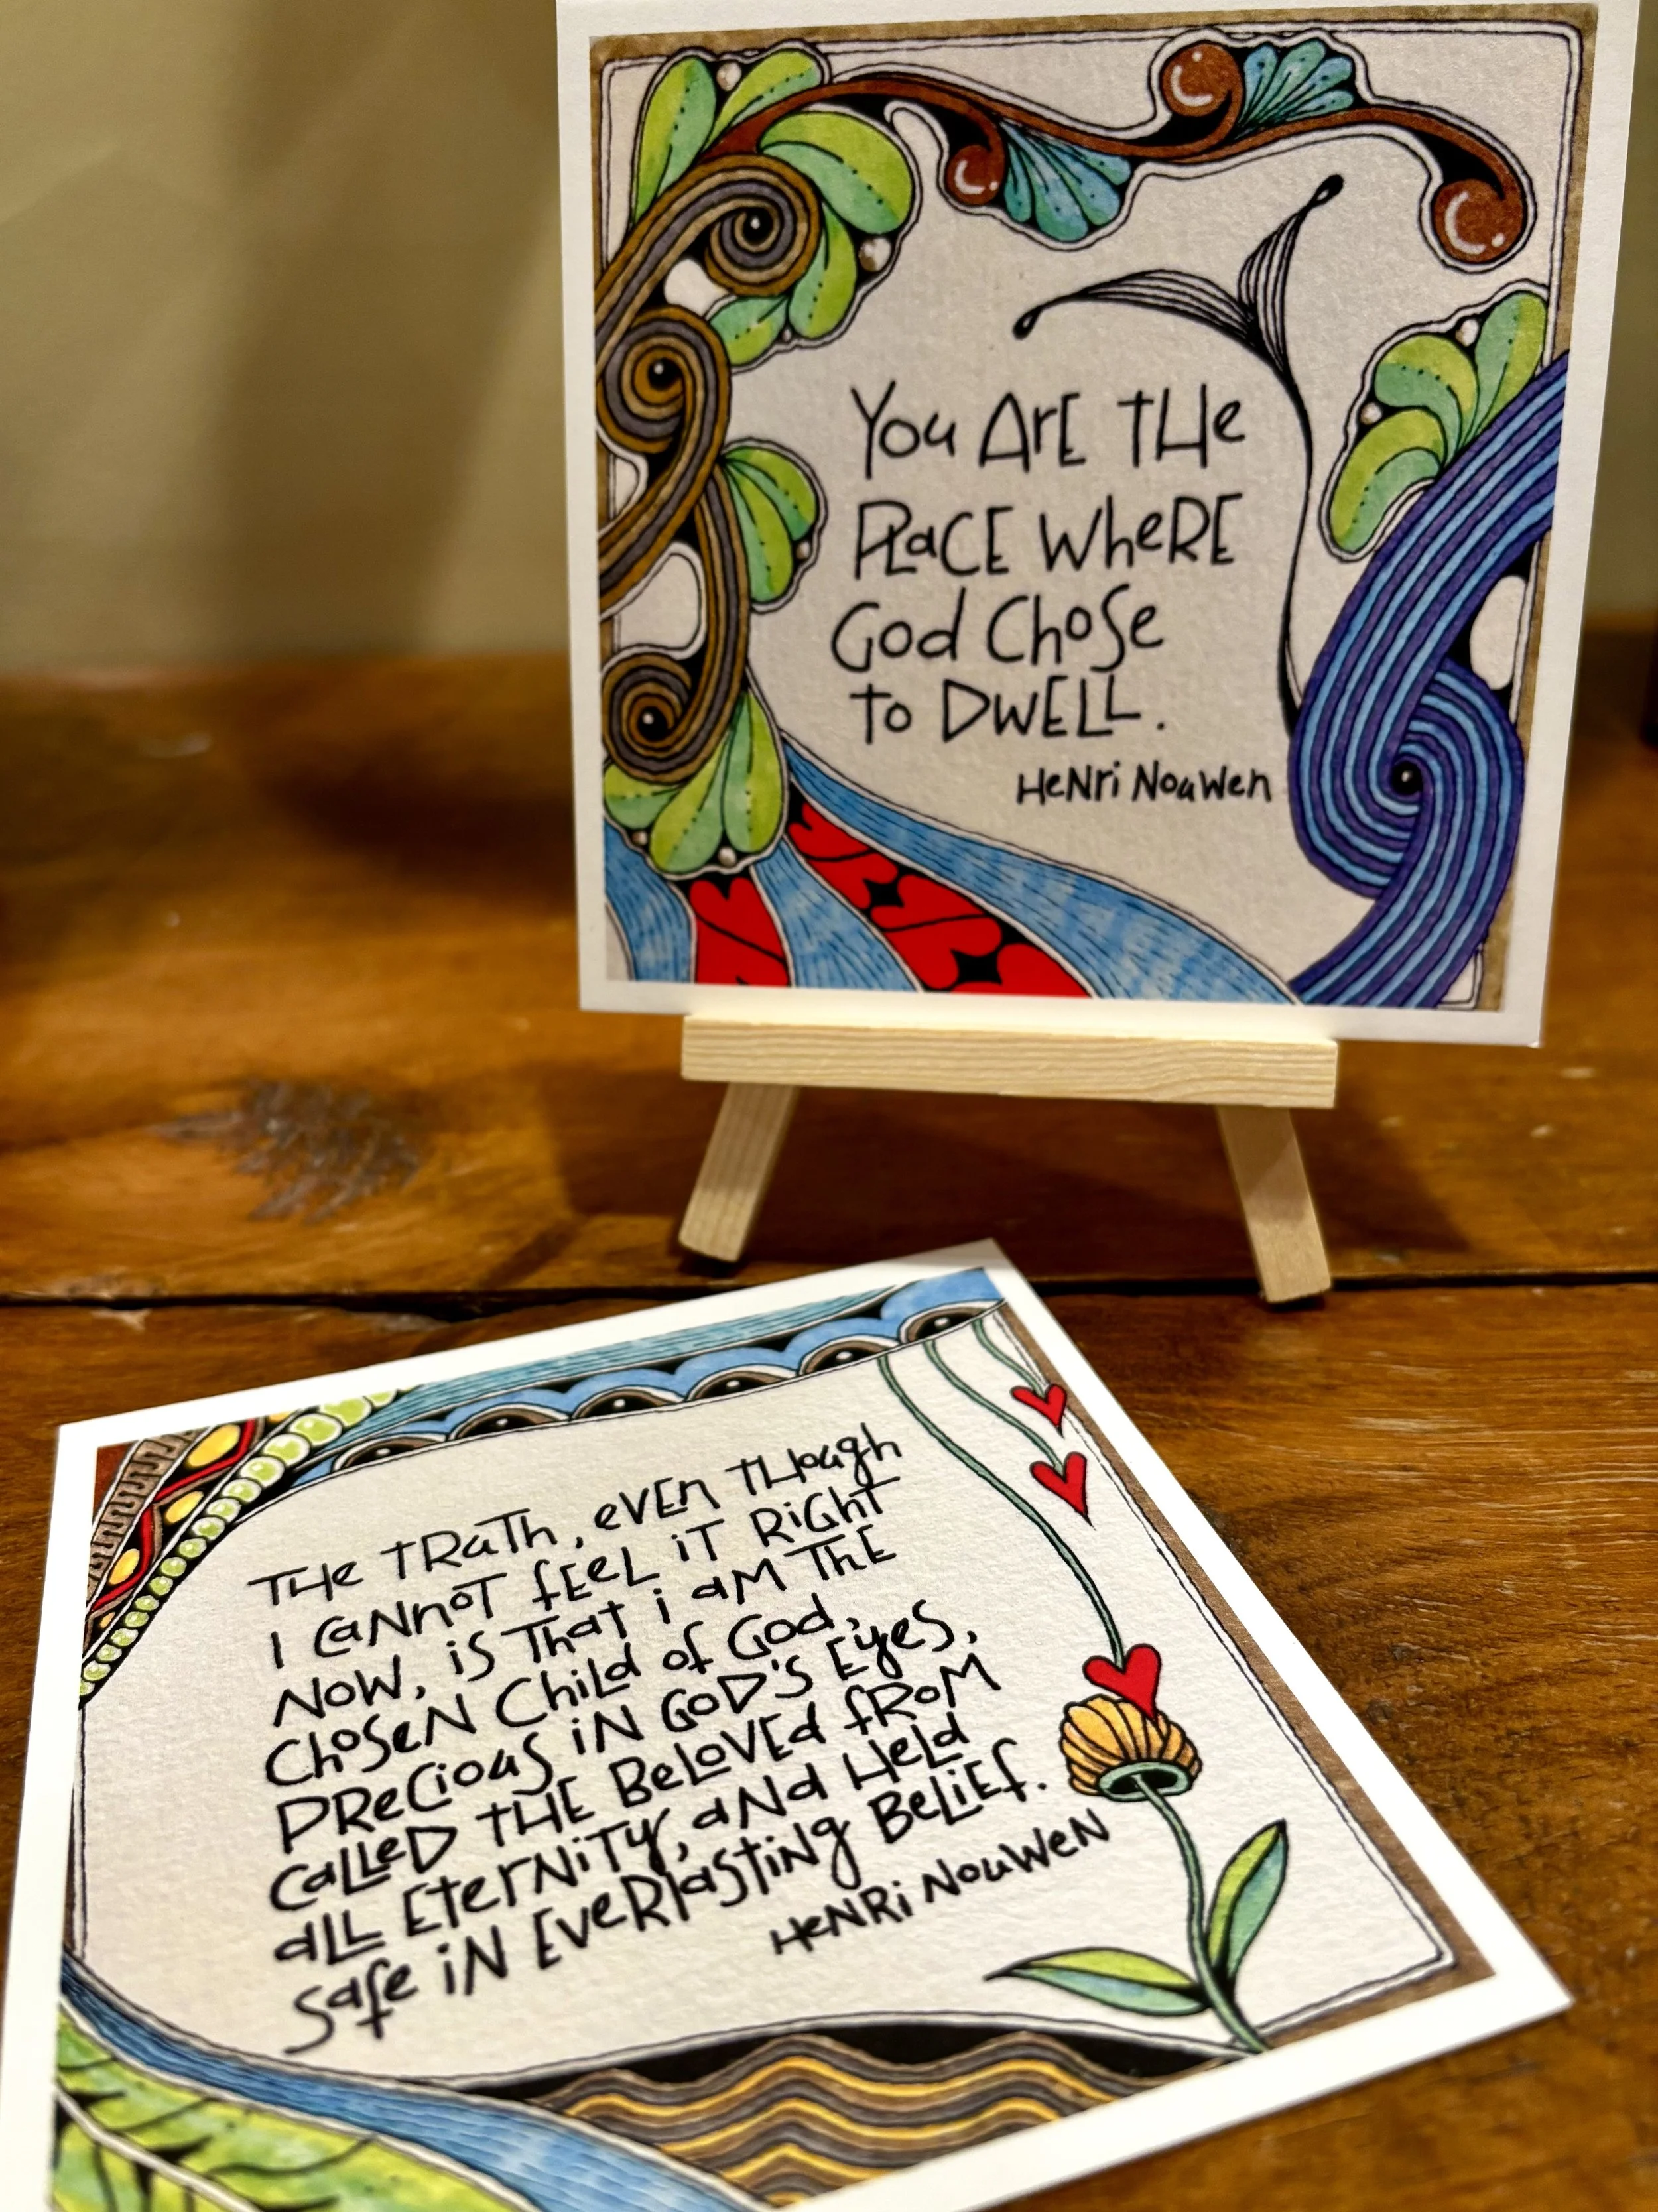 You Are the
Place where
God Chose
to Dwell.
Henri Nouwen
The truth, even though
I cannot feel it right
now, is that i am the
Chosen Child of God,
precious in God's Eyes,
called the Beloved from
all Eternity, and Held
safe in Everlasting Belief.
Henri Nouwen